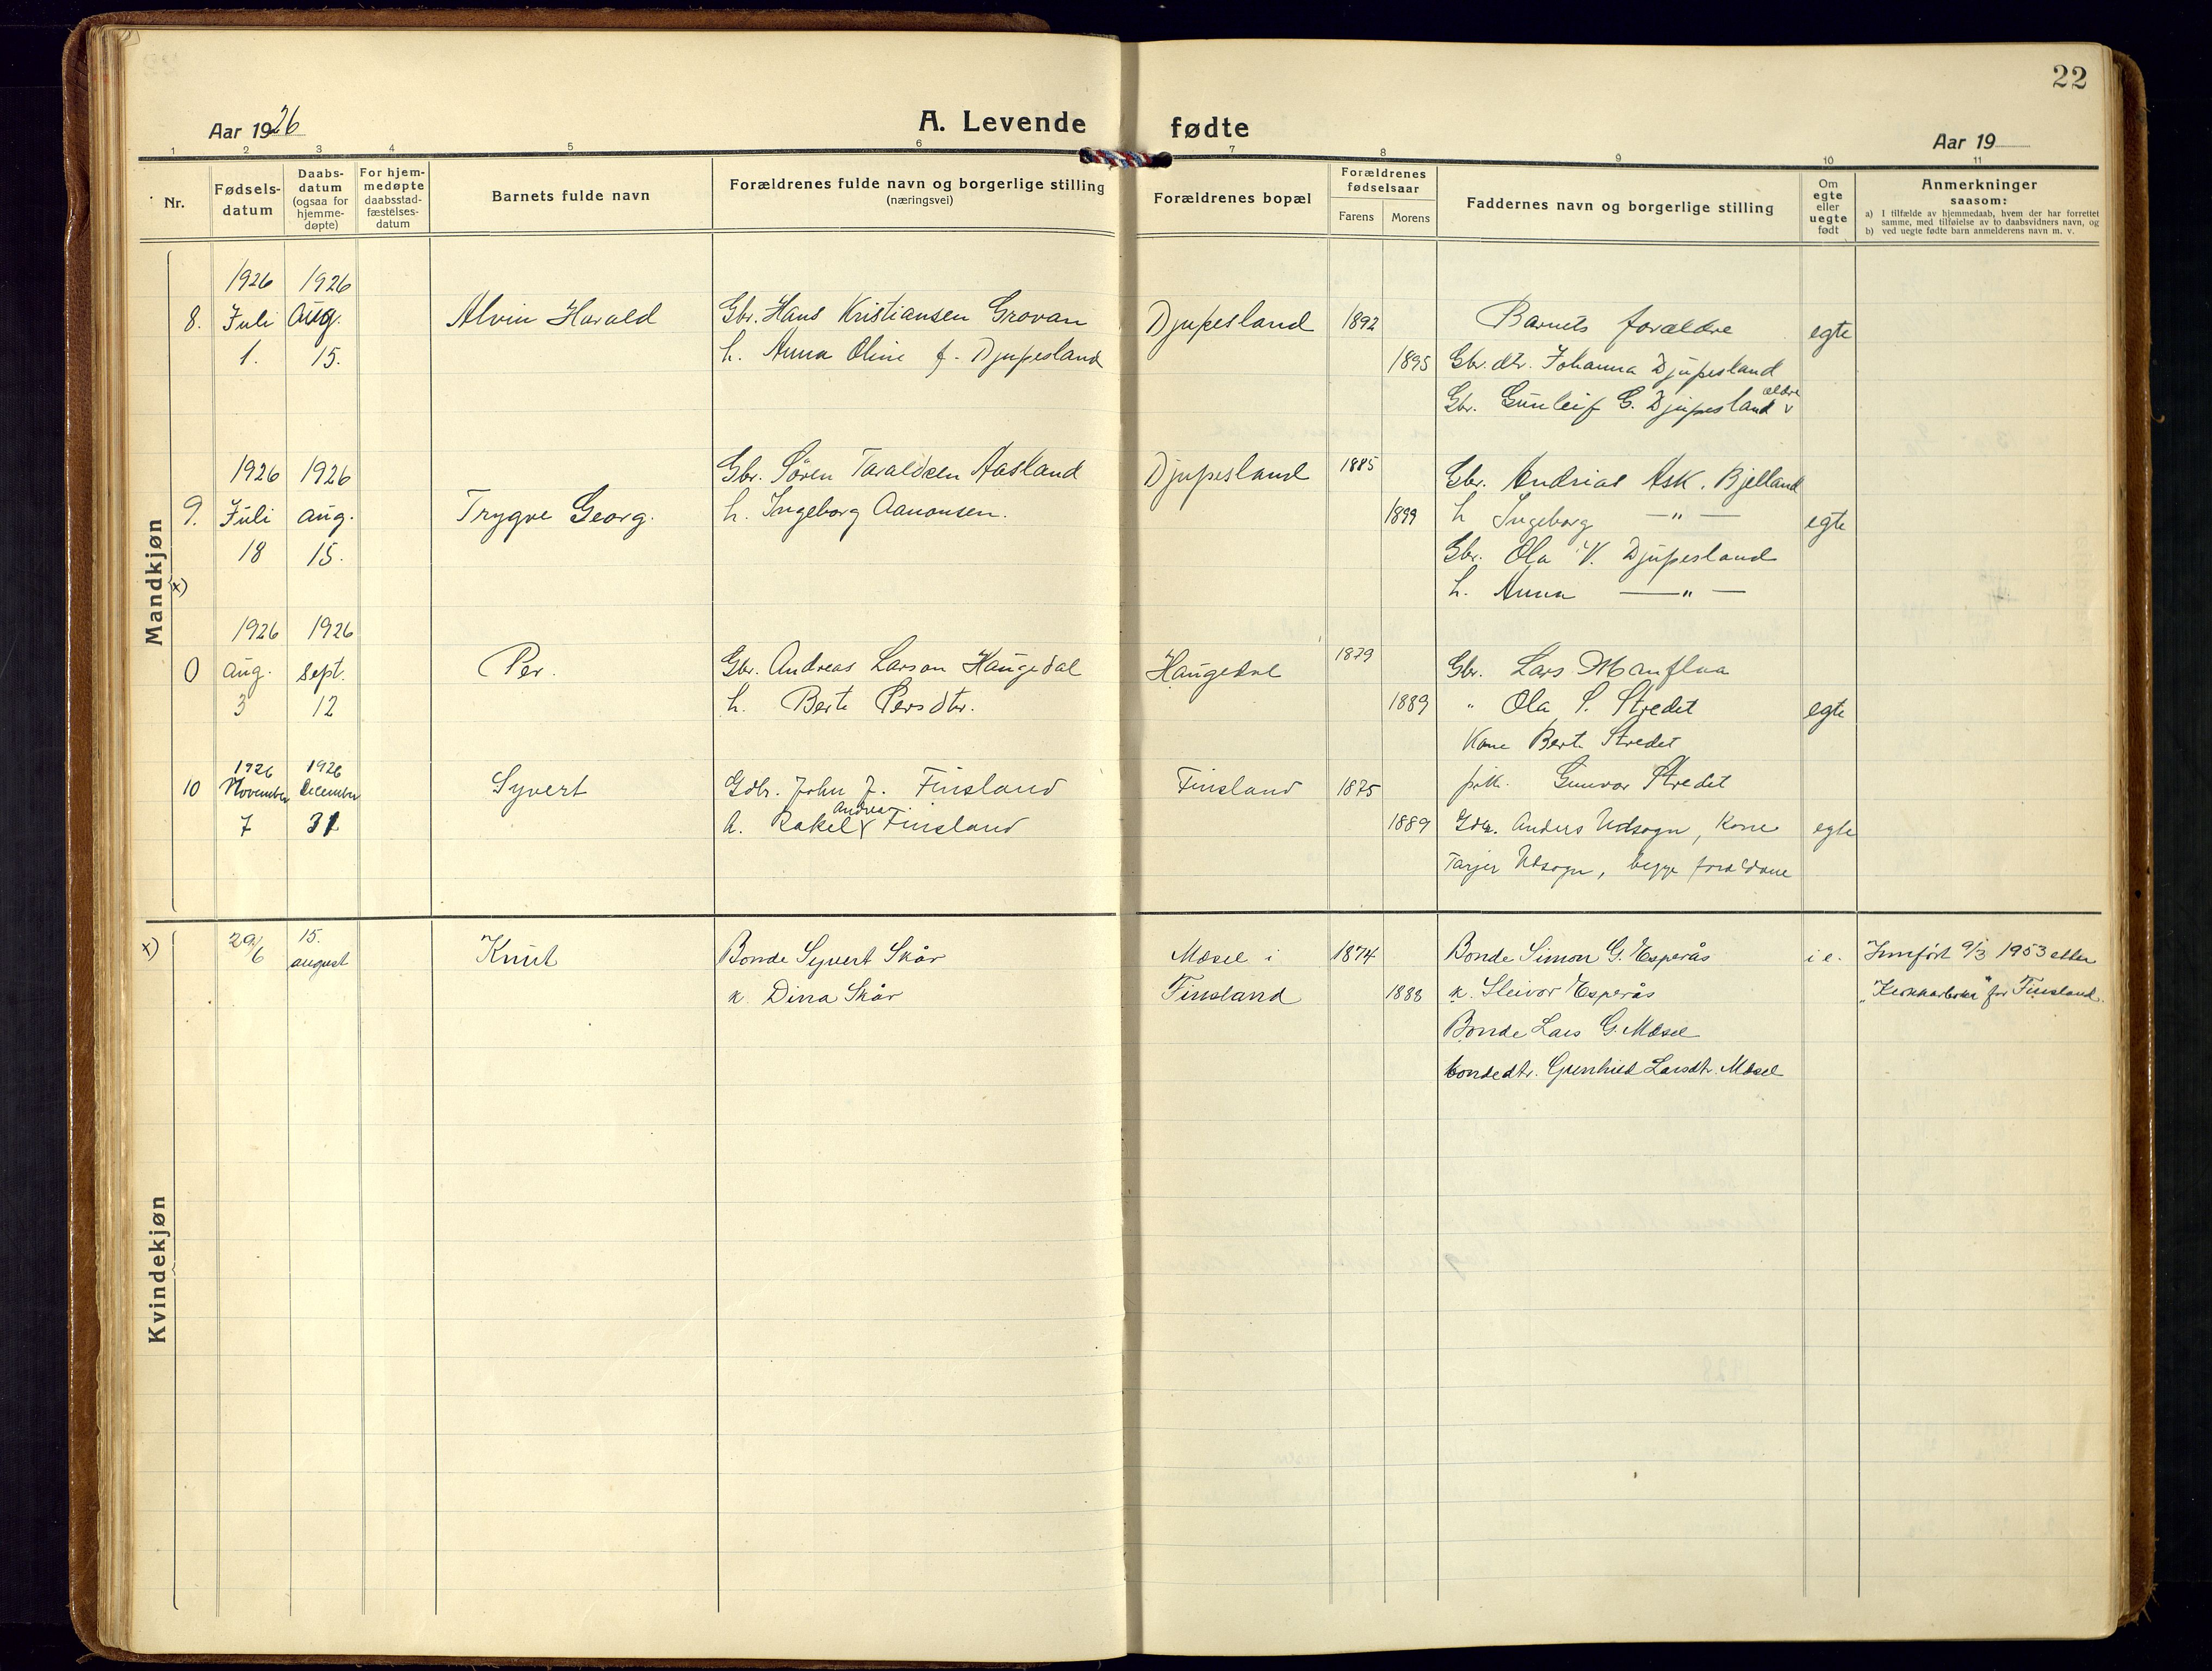 22
Aar 1926
A. Levende fødte
Aar 19
1 2 3 4 5 6 7 8 9 10 11
Nr.
Fødsels-
datum
Daabs-
datum
(ogsaa for
hjemme-
døpte)
For hjem-
medøpte
daabsstad-
fæstelses-
datum
Barnets fulde navn
Forældrenes fulde navn og borgerlige stilling
(næringsvei)
Forældrenes bopæl
Forældrenes
fødselsaar
Farens Morens
Faddernes navn og borgerlige stilling
Om
egte
eller
uegte
født
Anmerkninger
saasom:
a) I tilfælde av hjemmedaab, hvem der har forrettet
samme, med tilføielse av to daabsvidners navn, og
b) ved uegte fødte barn anmelderens navn m. v.
Mandkjøn
1926 1926
8. Juli Aug. Alvin Harald Gbr. Hans Kristiansen Grovan Djupesland 1892 Barnets forældre egte
1. 15. h. Anna Oline f. Djupesland 1895 Gbr. dtr. Johanna Djupesland
Gbr. Gunleif G. Djupesland ældre
1926 1926 Gbr. Søren Taraldsen Aasland Djupesland 1885 Gbr. Andrias Ask. Bjelland
9. Juli aug. Trygve Georg. h. Ingeborg Aanonsen. 1899 h Ingeborg — " — egte
18 15. Gbr. Ola V. Djupesland
x) h. Anna — " —
1926 1926
0 aug. sept. Per. Gbr. Andreas Larson Haugedal Haugedal 1879 Gbr. Lars Manflaa
3 12 h. Berte Persdtr. 1889 " Ola S. Stredet egte
Kone Berte Stredet
1926 1926
10 November December Syvert Gdbr. John J. Finsland Finsland 1875 pik. Gunvor Stredet
7 31 h. Rakel Andrea Finsland 1889 Gdbr. Anders Udsogn, Kone egte
Tarjer Udsogn, begge forældrene
Kvindekjøn
x) 29/6 15. august Knut Bonde Syvert Skår Mæsel i 1874 Bonde Simon G. Esperås i e. Innført 9/3 1953 etter
k. Dina Skår Finsland 1888 k. Sleivor Esperås "Kirkarboka" for Finsland.
Bonde Lars G. Mæsel
bondedtr. Gunhild Larsdtr. Mæsel